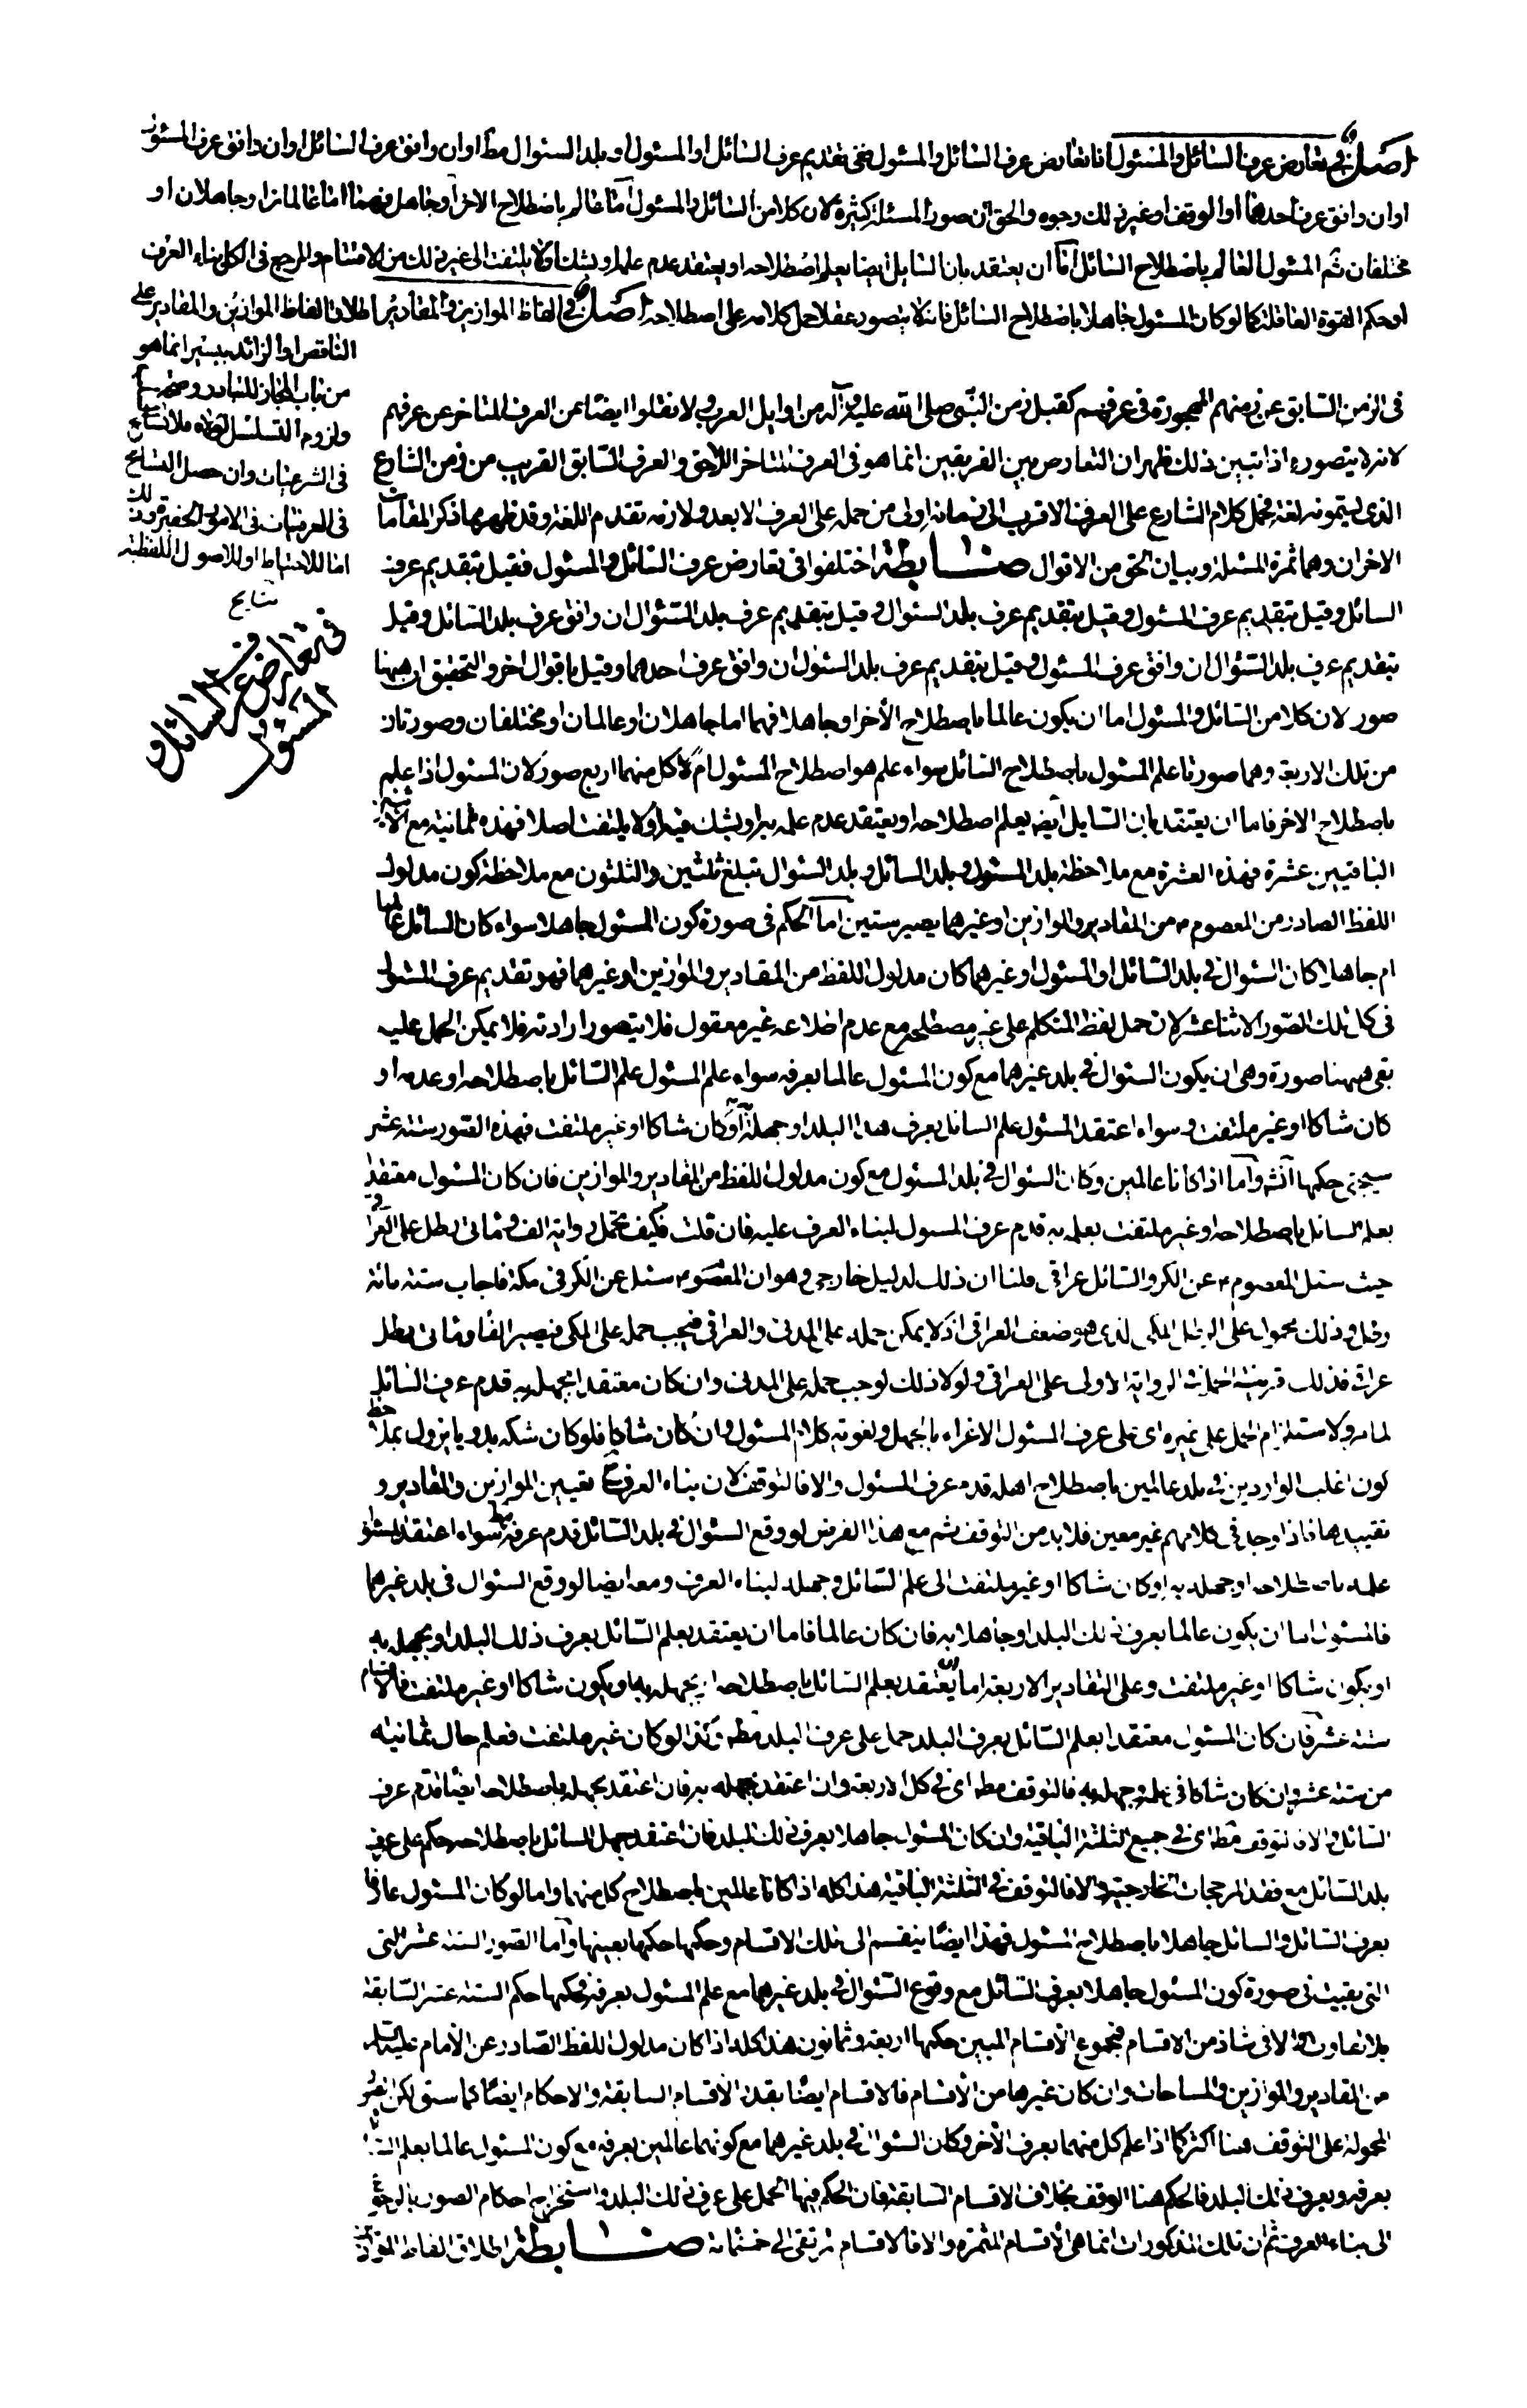 اصل فى تعارض عرف السائل والمسئول اذا تعارض عرف السائل والمسئول ففى تقديم عرف السائل او المسئول او بلد السئوال مط او ان وافق عرف السائل او ان وافق عرف المسئول
او ان وافق عرف احدهما او الوقف او غير ذلك وجوه والحق ان صور المسئلة كثيرة لان كلا من السائل والمسئول اما عالم باصطلاح الاخر او جاهل فهما اما عالمان او جاهلان او
مختلفان ثم المسئول العالم باصطلاح السائل اما ان يعتقد بان السايل ايضا يعلم اصطلاحه او يعتقد عدم علمه او يشك او لا يلتفت الى غير ذلك من الاقسام والمرجع فى الكل بناء العرف
او حكم القوة العاقلة كما لو كان المسئول جاهلا باصطلاح السائل فانه لا يتصور عقلا حمل كلامه على اصطلاحه اصل فى الفاظ الموازين والمقادير اطلاق الفاظ الموازين والمقادير على
الناقص او الزائد بيسير انما هو
من باب المجاز للتبادر وصحة
ولزوم التسلسل لولاه فلا تسامح
فى الشرعيات وان حصل التسامح
فى العرفيات فى الامور الحقيرة وذلك
اما للاحتياط او للاصول اللفظية
نتايج
فى تعارض عرف السائل و
المسئول
فى الزمن السابق عن زمنهم المهجورة فى عرفهم كقبل زمن النبى صلى الله عليه وآله من اوايل العرب ولا نقلوا ايضا عن العرف المتاخر عن عرفهم
لانه لا يتصور اذا تبين ذلك ظهر ان التعارض بين الفريقين انما هو فى العرف المتاخر اللاحق والعرف السابق القريب من زمن الشارع
الذى يسمونه لغة فحمل كلام الشارع على العرف الاقرب الى زمانه اولى من حمله على العرف الابعد ولازمه تقدم اللغة وقد ظهر بما ذكر المقامات
الاخران وهما ثمرة المسئلة وبيان الحق من الاقوال ضابطة اختلفوا فى تعارض عرف السائل والمسئول فقيل بتقديم عرف
السائل وقيل بتقديم عرف المسئول وقيل بتقديم عرف بلد السئوال وقيل بتقديم عرف بلد السئوال ان وافق عرف بلد السائل وقيل
بتقديم عرف بلد السئوال ان وافق عرف المسئول وقيل بتقديم عرف بلد السئوال ان وافق عرف احدهما وقيل باقوال اخر والتحقيق ان ههنا
صور لان كلا من السائل والمسئول اما ان يكون عالما باصطلاح الأخر او جاهلا فهما اما جاهلان او عالمان او مختلفان وصورتان
من تلك الاربعة وهما صورتا علم المسئول باصطلاح السائل سواء علم هو اصطلاح المسئول ام لا كل منهما اربع صور لان المسئول اذا علم
باصطلاح الاخر فاما ان يعتقد بان السايل ايضه يعلم اصطلاحه او يعتقد عدم علمه به او يشك فيه او لا يلتفت اصلا فهذه ثمانية مع الاثنين
الباقيين عشرة فهذه العشرة مع ملاحظة بلد المسئول وبلد السائل وبلد السئوال تبلغ ثلثين والثلثون مع ملاحظة كون مدلول
اللفظ الصادر من المعصوم م من المقادير والموازين او غيرهما يصير ستين اما الحكم فى صورة كون المسئول جاهلا سواء كان السائل عالما
ام جاهلا كان السئوال فى بلد السائل او المسئول او غيرهما كان مدلول اللفظ من المقادير والموازين او غيرهما فهو تقديم عرف المسئول
فى كل تلك الصور الاثنا عشر لان حمل لفظ المتكلم على غير مصطلحه مع عدم اطلاعه غير معقول فلا يتصور ارادته فلا يمكن الحمل عليه
بقى ههنا صورة وهى ان يكون السئوال فى بلد غيرهما مع كون المسئول عالما بعرفه سواء علم المسئول علم السائل باصطلاحه او عدمه او
كان شاكا او غير ملتفت وسواء اعتقد المسئول علم السائل بعرف هذا البلد او جهله او كان شاكا او غير ملتفت فهذه الصور ستة عشر
سيجئ حكمها انش واما اذا كانا عالمين وكان السئوال فى بلد المسئول مع كون مدلول اللفظ من المقادير والموازين فان كان المسئول معتقدا
بعلم السائل باصطلاحه او غير ملتفت بعلمه به قدم عرف المسئول لبناء العرف عليه فان قلت فكيف تحمل رواية الف ومائتى رطل على العراقى
حيث سئل المعصوم م عن الكر والسائل عراقى قلنا ان ذلك لدليل خارجى وهو ان المعصوم م سئل عن الكر فى مكة فاجاب ستة مائة
رطل وذلك محمول على الرطل المكى الذى هو ضعف العراقى اذ لا يمكن حمله على المدنى والعراقى فيجب حمله على المكى فيصير الفا ومائتى رطل
عراقى فذلك قرينة لحمل الرواية الاولى على العراقى ولولا ذلك لوجب حمله على المدنى وان كان معتقدا بجهله به قدم عرف السائل
لما مر ولاستلزام الحمل على غيره اى على عرف المسئول الاغراء بالجهل ولغوية كلام المسئول وان كان شاكا فلو كان شكه بدويا يزول بملاحظة
كون اغلب الواردين فى بلد عالمين باصطلاح اهله قدم عرف المسئول والا فالتوقف لان بناء العرف على تعيين الموازين والمقادير و
تقييدها فاذا وجد فى كلامهم غير معين فلا بد من التوقف ثم مع هذا الفرض لو وقع السئوال فى بلد السائل قدم عرفه مط سواء اعتقد المسئول
علمه باصطلاحه او جهله به او كان شاكا او غير ملتفت الى علم السائل وجهله لبناء العرف ومعه ايضا لو وقع السئوال فى بلد غيرهما
فالمسئول اما ان يكون عالما بعرف ذلك البلد او جاهلا به فان كان عالما فاما ان يعتقد بعلم السائل بعرف ذلك البلد او بجهله به
او يكون شاكا او غير ملتفت وعلى التقادير الاربعة اما ان يعتقد بعلم السائل باصطلاحه او بجهله به او يكون شاكا او غير ملتفت فالاقسام
ستة عشر فان كان المسئول معتقدا بعلم السائل بعرف البلد حمل على عرف البلد مط وكذا لو كان غير ملتفت فعلم حال ثمانية
من ستة عشر وان كان شاكا فى علمه وجهله به فالتوقف مط اى فى كل الاربعة وان اعتقد بجهله به فان اعتقد بجهله باصطلاحه ايضا قدم عرف
السائل والا فالتوقف مط اى فى جميع الثلثة الباقية وان كان المسئول جاهلا بعرف ذلك البلد فان اعتقد جهل السائل باصطلاحه حكم على عرف
بلد السائل مع فقد المرجحات الخارجية والا فالتوقف فى الثلثة الباقية هذا كله اذا كانا عالمين باصطلاح كل منهما واما لو كان المسئول عارفا
بعرف السائل والسائل جاهلا باصطلاح المسئول فهذا ايضا ينقسم الى تلك الاقسام وحكمها حكمها بعينها واما الصور الستة عشر التى
التى بقيت فى صورة كون المسئول جاهلا بعرف السائل مع وقوع السئوال فى بلد غيرهما مع علم المسئول بعرفه فحكمها حكم الستة عشر السابقة
بلا تفاوت الا فى شاذ من الاقسام فمجموع الأقسام المبين حكمها اربعة وثمانون هذا كله اذا كان مدلول اللفظ الصادر عن الأمام عليه السلام
من المقادير والموازين والمساحات وان كان غيرها من الأقسام فالاقسام ايضا بقدر الأقسام السابقة والاحكام ايضا كما سبق لكن الصور
المحمولة على التوقف هنا اكثر كما اذا علم كل منهما بعرف الأخر وكان السئوال فى بلد غيرهما مع كونهما عالمين بعرفه مع كون المسئول عالما بعلم السائل
بعرفه وبعرف ذلك البلد فالحكم هنا الوقف بخلاف الاقسام السابقة فان الحكم فيها الحمل على عرف ذلك البلد واستخراج احكام الصور بالرجوع
الى بناء العرف ثم ان تلك المذكورات انما هى الأقسام المثمرة والا فالاقسام ترتقى الى خمسمائة ضابطة اطلاق الفاظ الموازين